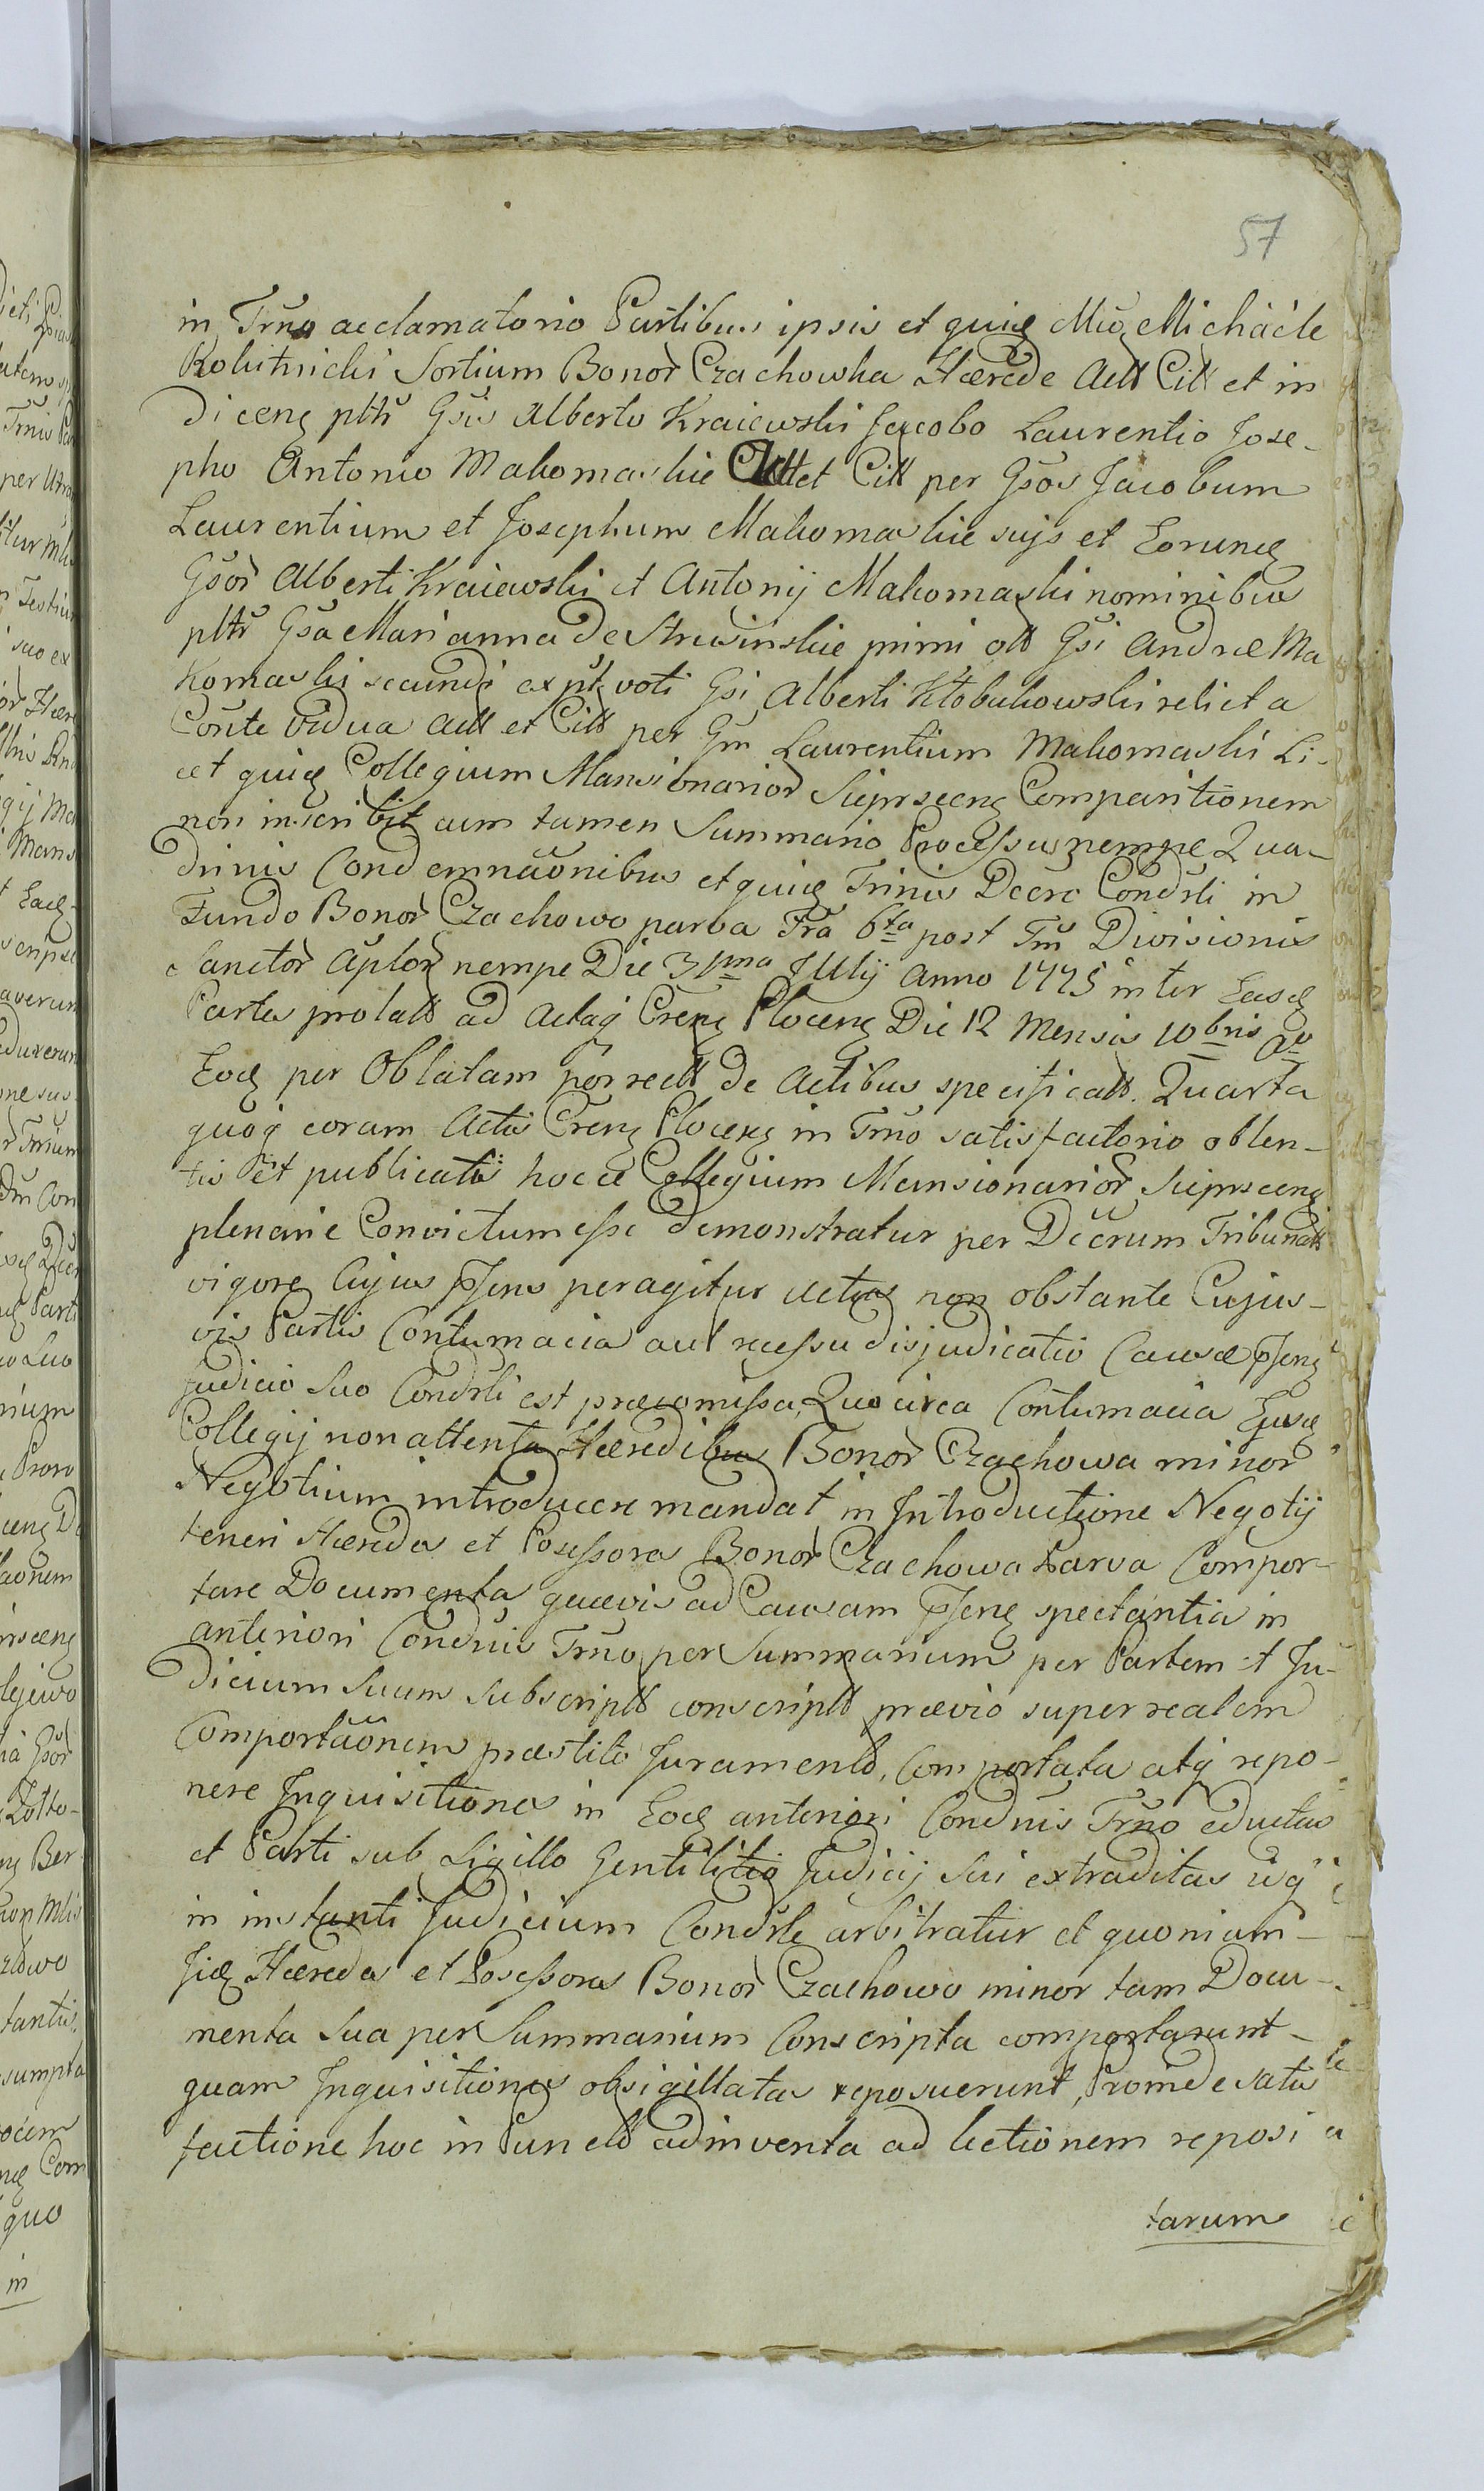 57
in Trno acclamatorio Partibus ipsis et quidẽ Mco Michaele
Rokitnicki Sortium Bonoȓ Czachowka Hærede Actt Citt et in
diceng pltr̃ Gsis Alberto Kraiewski Jacobo Laurentio Jose-
pho Antonio Makomaskie Actt et Citt per Gsos Jacobum
Laurentium et Josephum Makomaskie suis et Eorundẽ
Gsoȓ Alberti Kraiewski et Antonij Makomaski nominibus
pltr̃ Gsa Marianna de Strusinskie primi ott Gsi Andreæ Ma
komaski secundi ex voti Gsi Alberti Kłobukowski relicta
Conte Vidua Actt et Citt per Gm Laurentium Makomaski Li-
cet quidẽ Collegium Mansionarioȓ Sieprseeng Comparitionem
non inscribit cum tamen Summario Processus nempe Qua-
drinis Condemnãonibus et quidẽ Trinis Decre Condrli in
Fundo Bonoȓ Czachowo parva Fra 6ta post Tm Divisionis
Sanctoȓ Aplor nempe Die 31ma Julij Anno 1775 inter Easdẽ
Partes prolatt ad Actaq Creng Ploceng Die 12 Mensis 10bris Ao
Eodẽ per Oblatam porrectt de Actibus specificatt. Quarta
quoq coram Actis Creng Ploceng in Trno satisfactorio obten-
tis et publicatis hocce Collegium Mansionarioȓ Sieprsceng
plenarie Convictum esse demonstratur per Decrum Tribunatt
vigore Cujus pſens peragitur Actus non obstante Cujus-
vis Partis Contumacia aut recessu disjudicatio Causæ pſeng
Judicio Suo Condrli est præcomissa, Quocirca Contumacia Ejusdẽ
Collegij non attenta Hæredibus Bonoȓ Czachowa minor
Negotium introducere mandat in Introductione Negotij
teneri Hæredes et Possessores Bonoȓ Czachowa Parva Compor-
tare Documenta quævis ad Causam pſeng spectantia in
anteriori Condnis Trno per Summarium per Partem et Ju-
dicium Suum subscriptt conscriptt prævio super realem
Comportãonem præstito Juramento, Comportata atq repo-
nere Inquisitiones in Eodẽ anteriori Condnis Trno eductas
et Parti sub Sigillo Gentilitio Judicij Sui extraditas usq
in instanti Judicium Condrle arbitratur et quoniam
Jidẽ Hæredes et Possessores Bonoȓ Czachowo minor tam Docu-
menta Sua per Summarium Conscripta comportarunt
quam Inquisitiones obsigillatas reposuerunt, Proinde satis
factione hoc in Puncto adinventa ad lectionem reposi
tarum